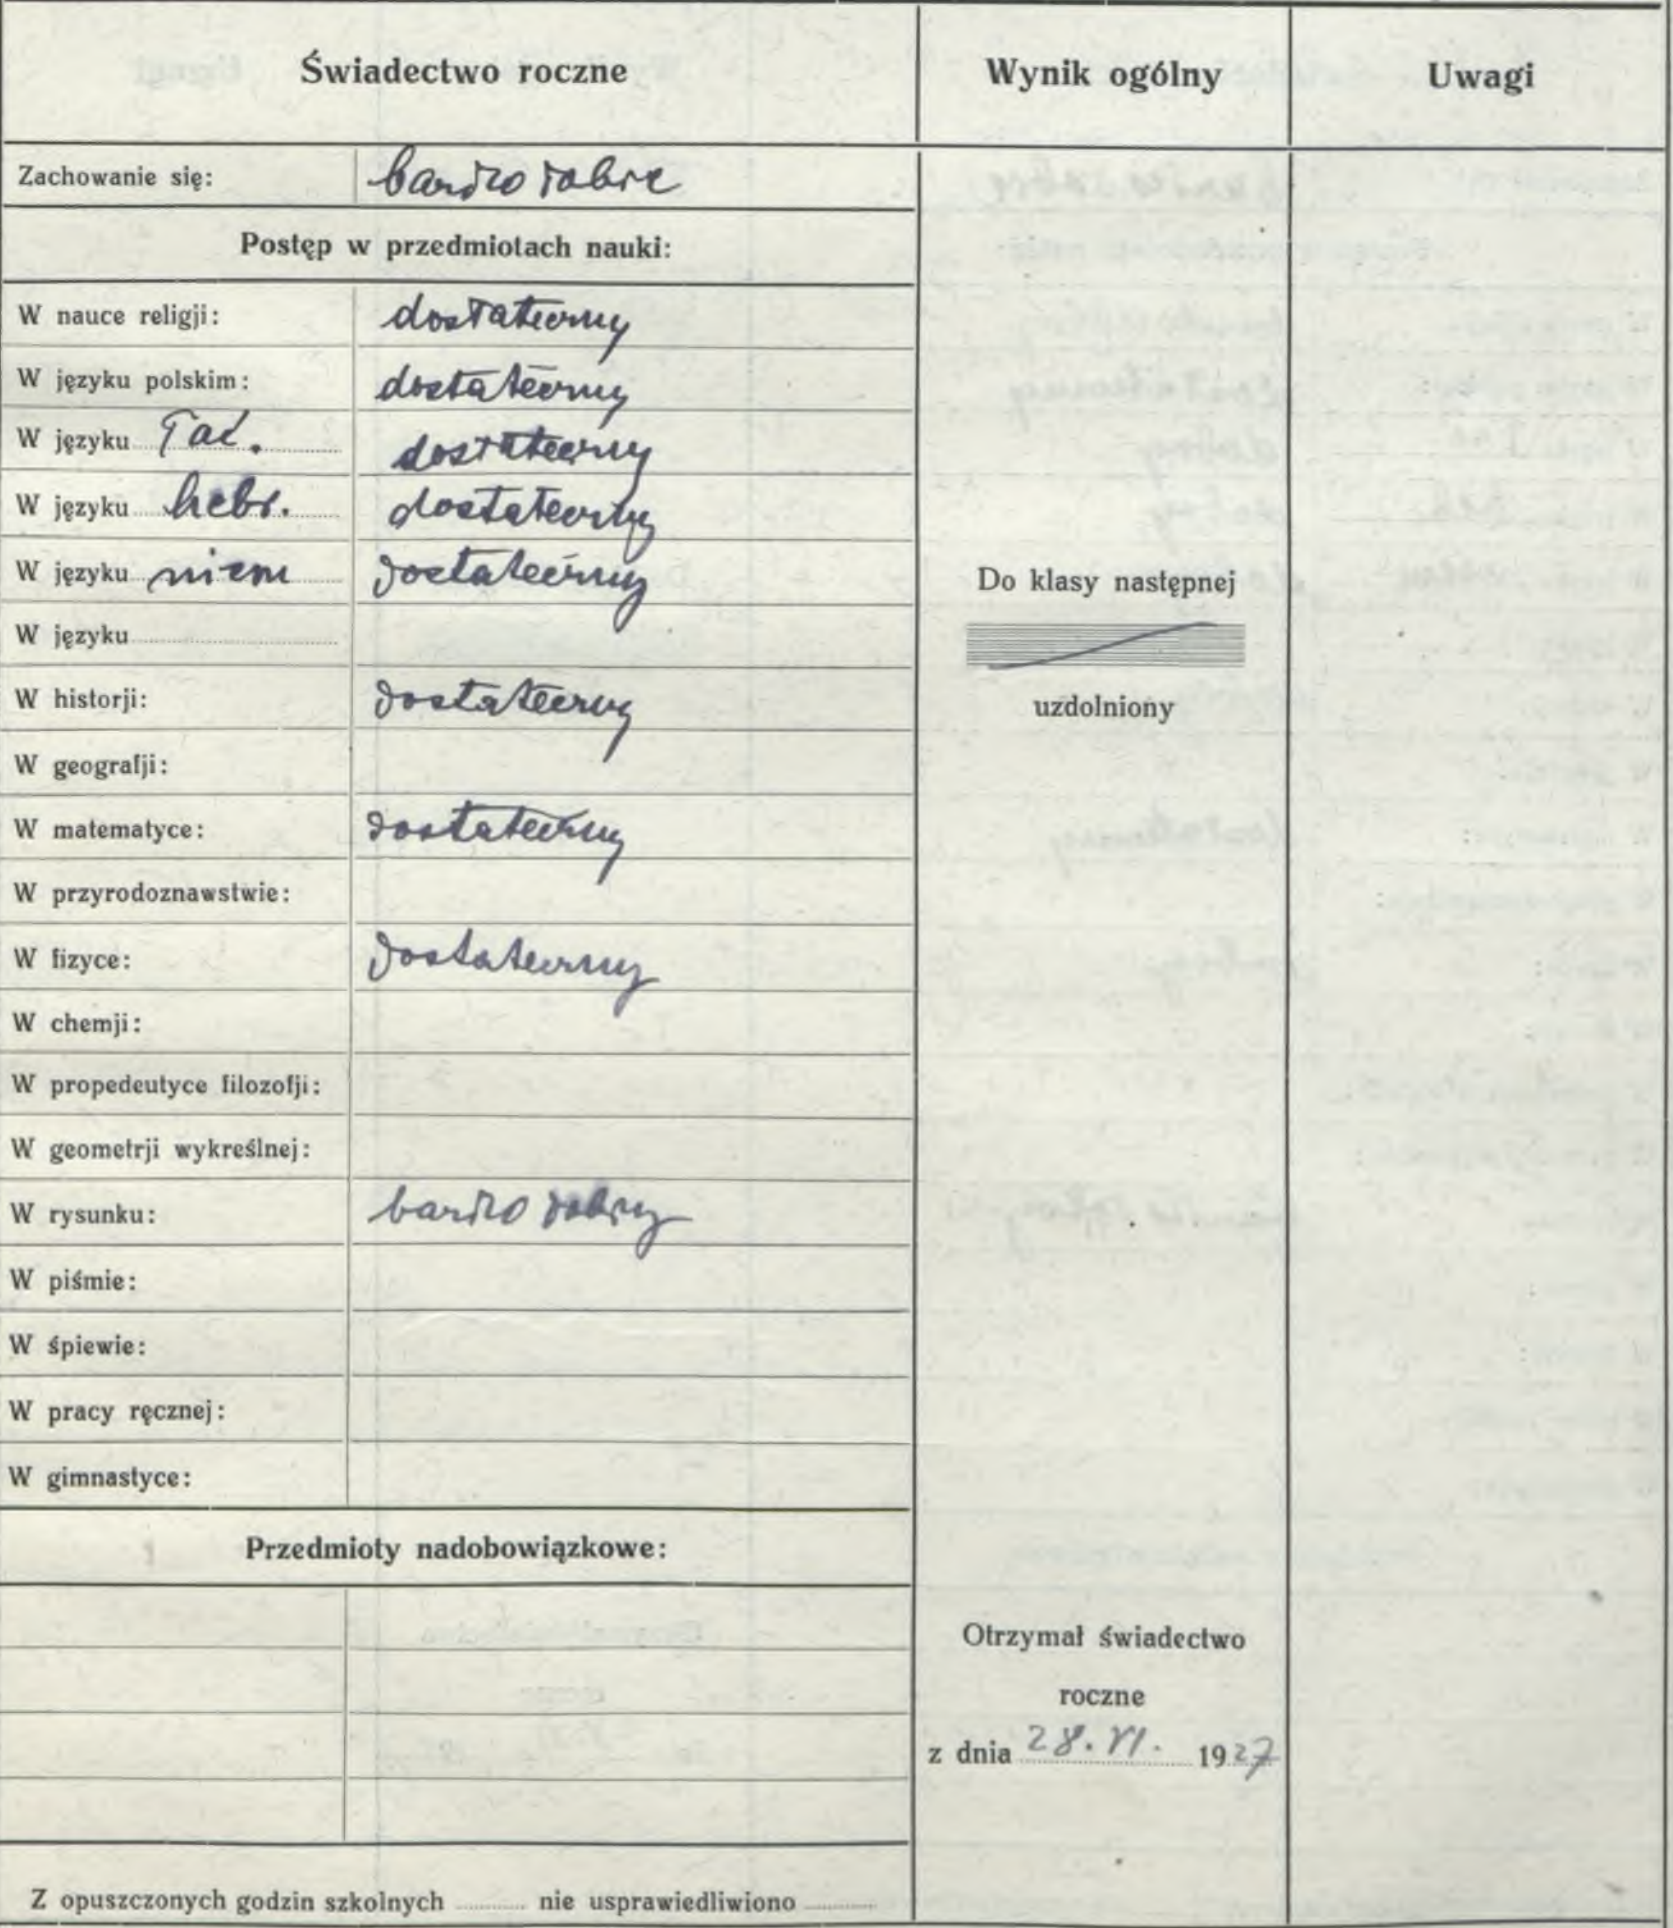 Świadectwo roczne Wynik ogólny Uwagi
Zachowanie się: bardzo dobre
Postęp w przedmiotach nauki:
W nauce religji: dostateczny
W języku polskim: dostateczny
W języku łac. dostateczny
W języku hebr. dostateczny
W języku niem dostateczny
Do klasy następnej
W języku
W historji: dostateczny
uzdolniony
W geografji:
W matematyce: dostateczny
W przyrodoznawstwie:
W fizyce: dostateczny
W chemji:
W propedeutyce filozofji:
W geometrji wykreślnej:
W rysunku: bardzo dobry
W piśmie:
W śpiewie:
W pracy ręcznej:
W gimnastyce:
Przedmioty nadobowiązkowe:
Otrzymał świadectwo
roczne
z dnia 28. VI. 1927
Z opuszczonych godzin szkolnych nie usprawiedliwiono